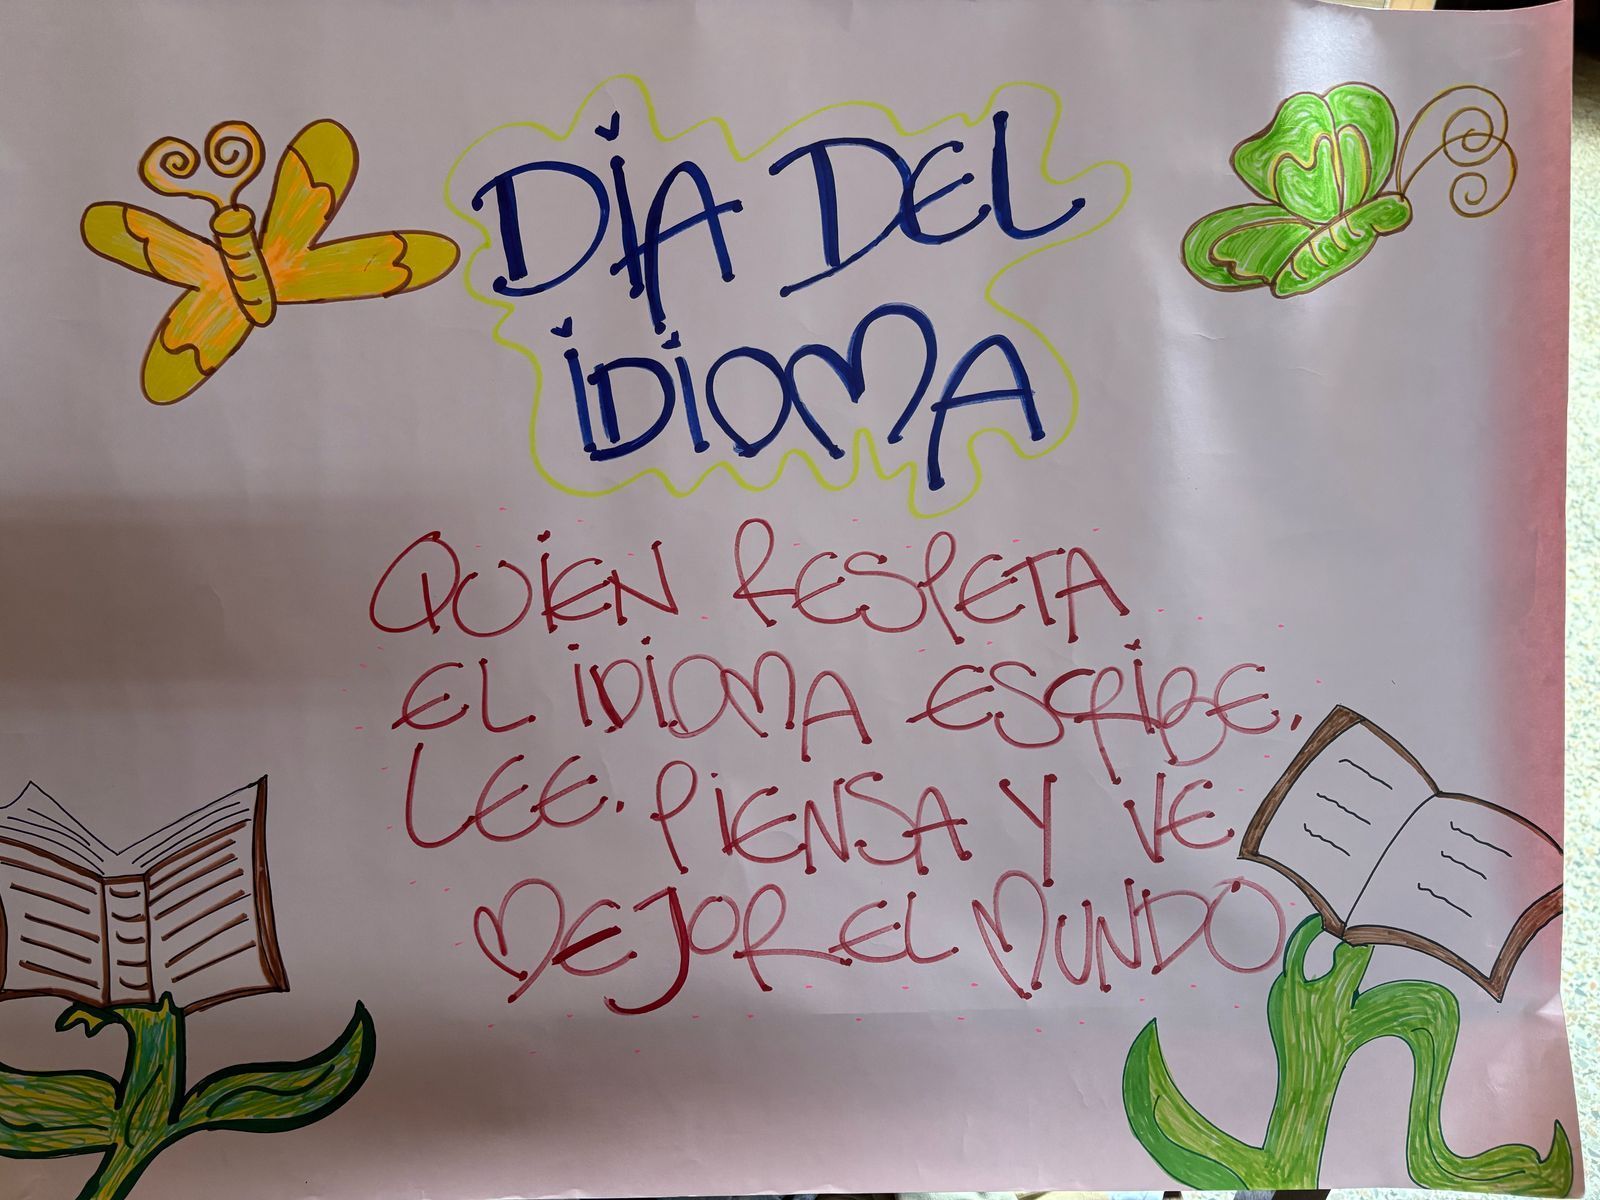 DÍA DEL
IDIOMA
QUIEN RESPETA
EL IDIOMA ESCRIBE.
LEE. PIENSA Y VE
MEJOR EL MUNDO